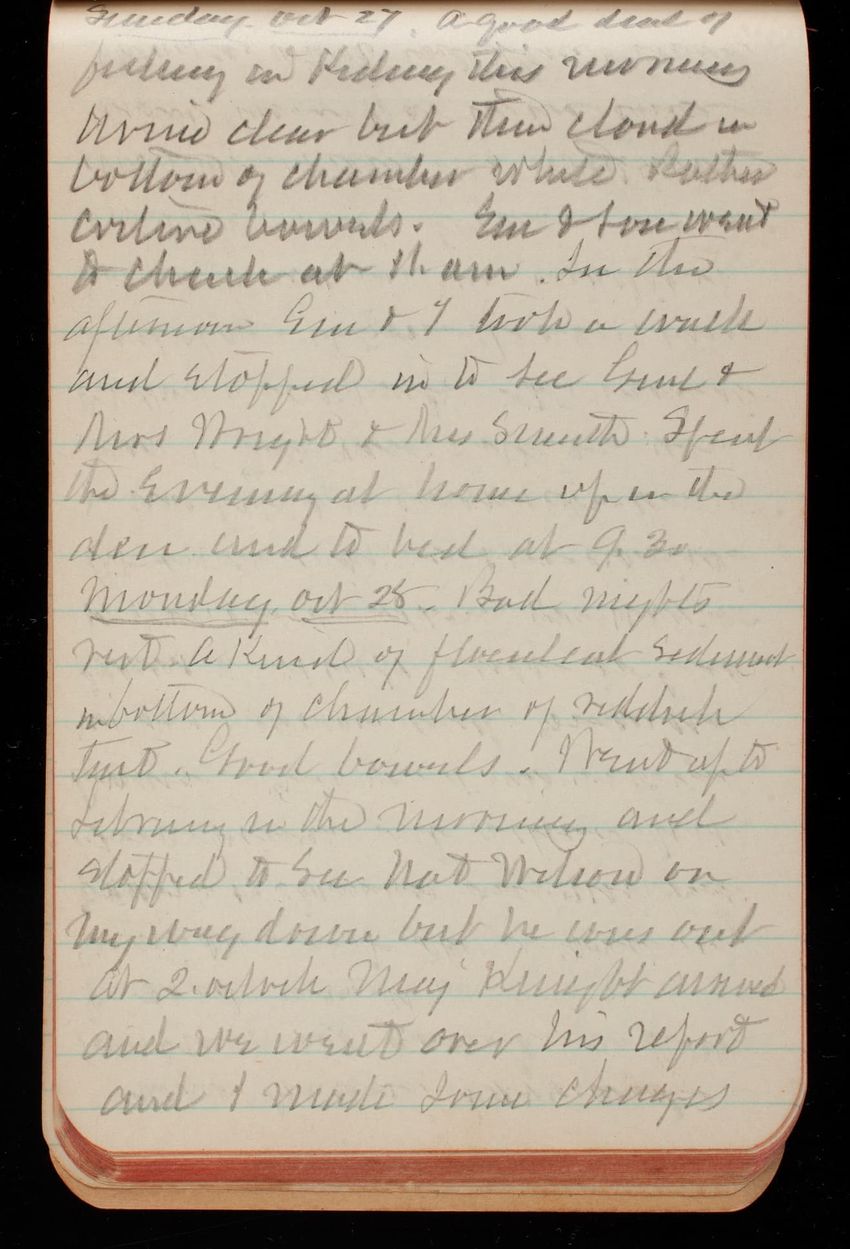 Sunday Oct 27. A good deal of
feeling in Kidney this morning
Urine clear but thin cloud in
bottom of chamber white. Rather
costive bowels. Em & Lou went
to church at 11. am. In the
afternoon Em & I took a walk
and stopped in to see Gene &
Mrs Wright & Mrs Smith. Spent
the Evening at home up in the
den and to bed at 9.30
Monday, Oct 28. Bad nights
rest. A Kind of flocculent sediment
in bottom of chamber of reddish
tint. Good bowels. Went up to
Library in the morning and
stopped to See Nat Wilson on
my way down but he was out
At 2. oclock Maj Knight arrived
and we went over his report
and I made some changes